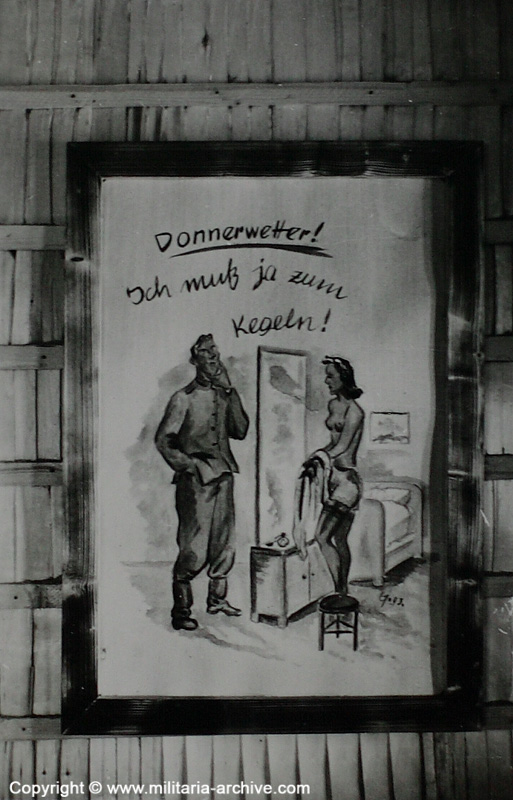 Donnerwetter!
Ich muß ja zum
Kegeln!
Copyright © www.militaria-archive.com